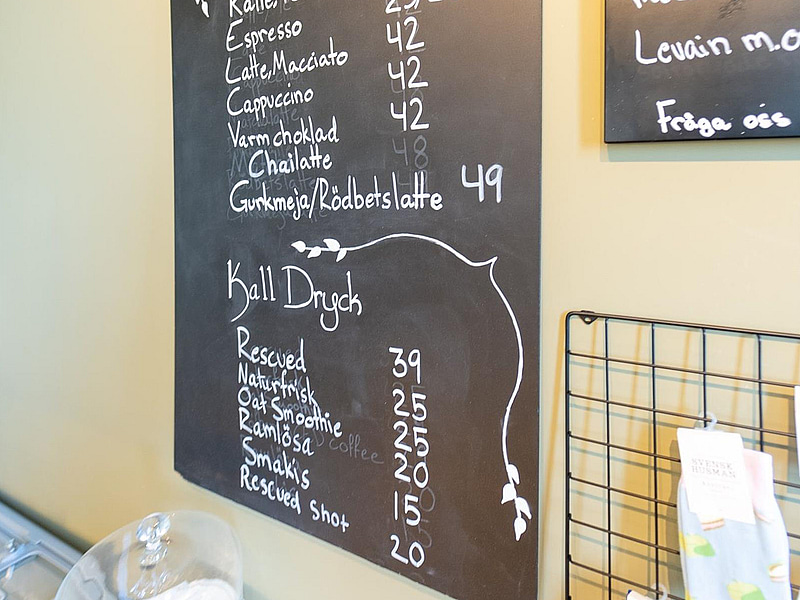 Kaffe,
Espresso 42
Latte, Macciato 42
Cappuccino 42
Varm choklad
Chailatte
Gurkmeja/Rödbetslatte 49
Kall Dryck
Rescued 39
Naturfrisk 25
Oat Smoothie 25
Ramlösa 20
Smakis 15
Rescued shot 20
Levain m.
Fråga oss
SVENSKE
HUSMAN